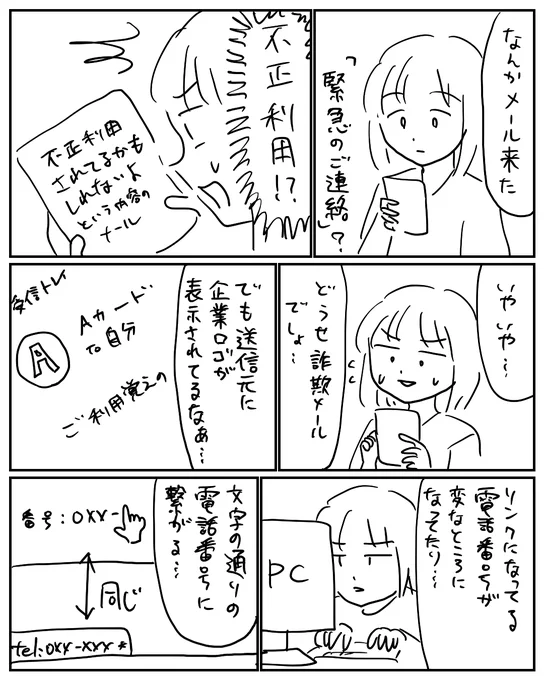 なんかメール来た
「緊急のご連絡」?
不正利用!?
不正利用
されてるかも
しれないよ
という内容の
メール
いやいや…
どうせ詐欺メール
でしょ…
でも送信元に
企業ロゴが
表示されてるなぁ…
受信トレイ
A
Aカード
to 自分
ご利用覚えの
リンクになってる
電話番号が
変なところに
なってたり…
PC
文字の通りの
電話番号に
繋がる…
番号:0XX-
同じ
tel:0XX-XXX*